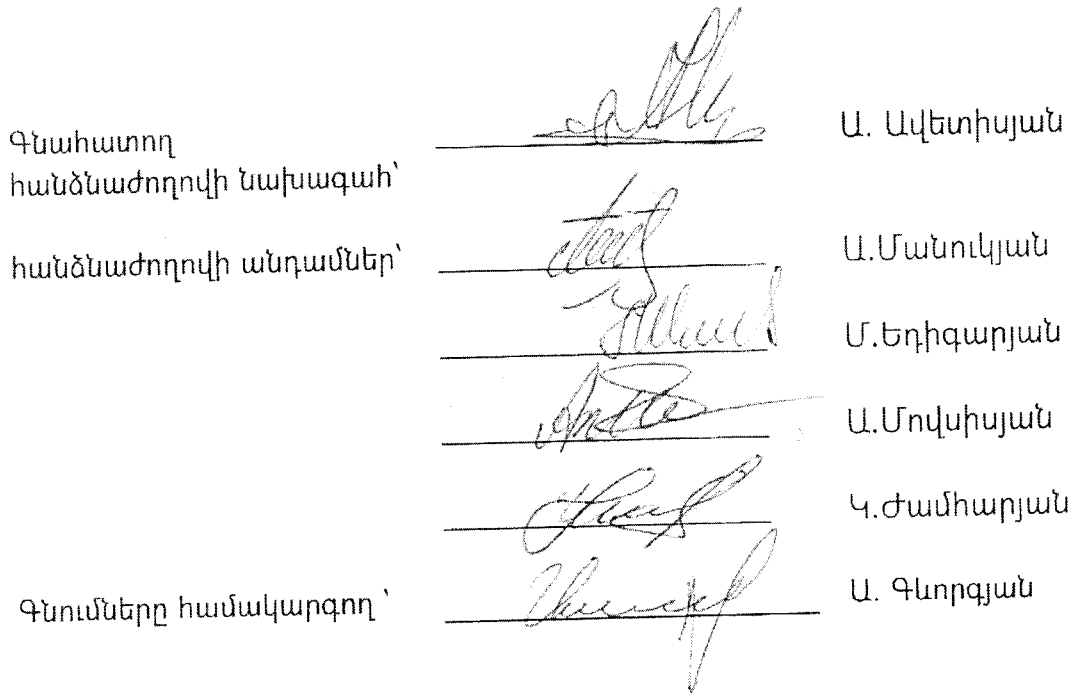 Գնահատող
հանձնաժողովի նախագահ՝
Ա. Ավետիսյան
հանձնաժողովի անդամներ՝
Ա.Մանուկյան
Մ.Եդիգարյան
Ա.Մովսիսյան
Կ.Ժամհարյան
Գնումները համակարգող ՝
Ա. Գևորգյան